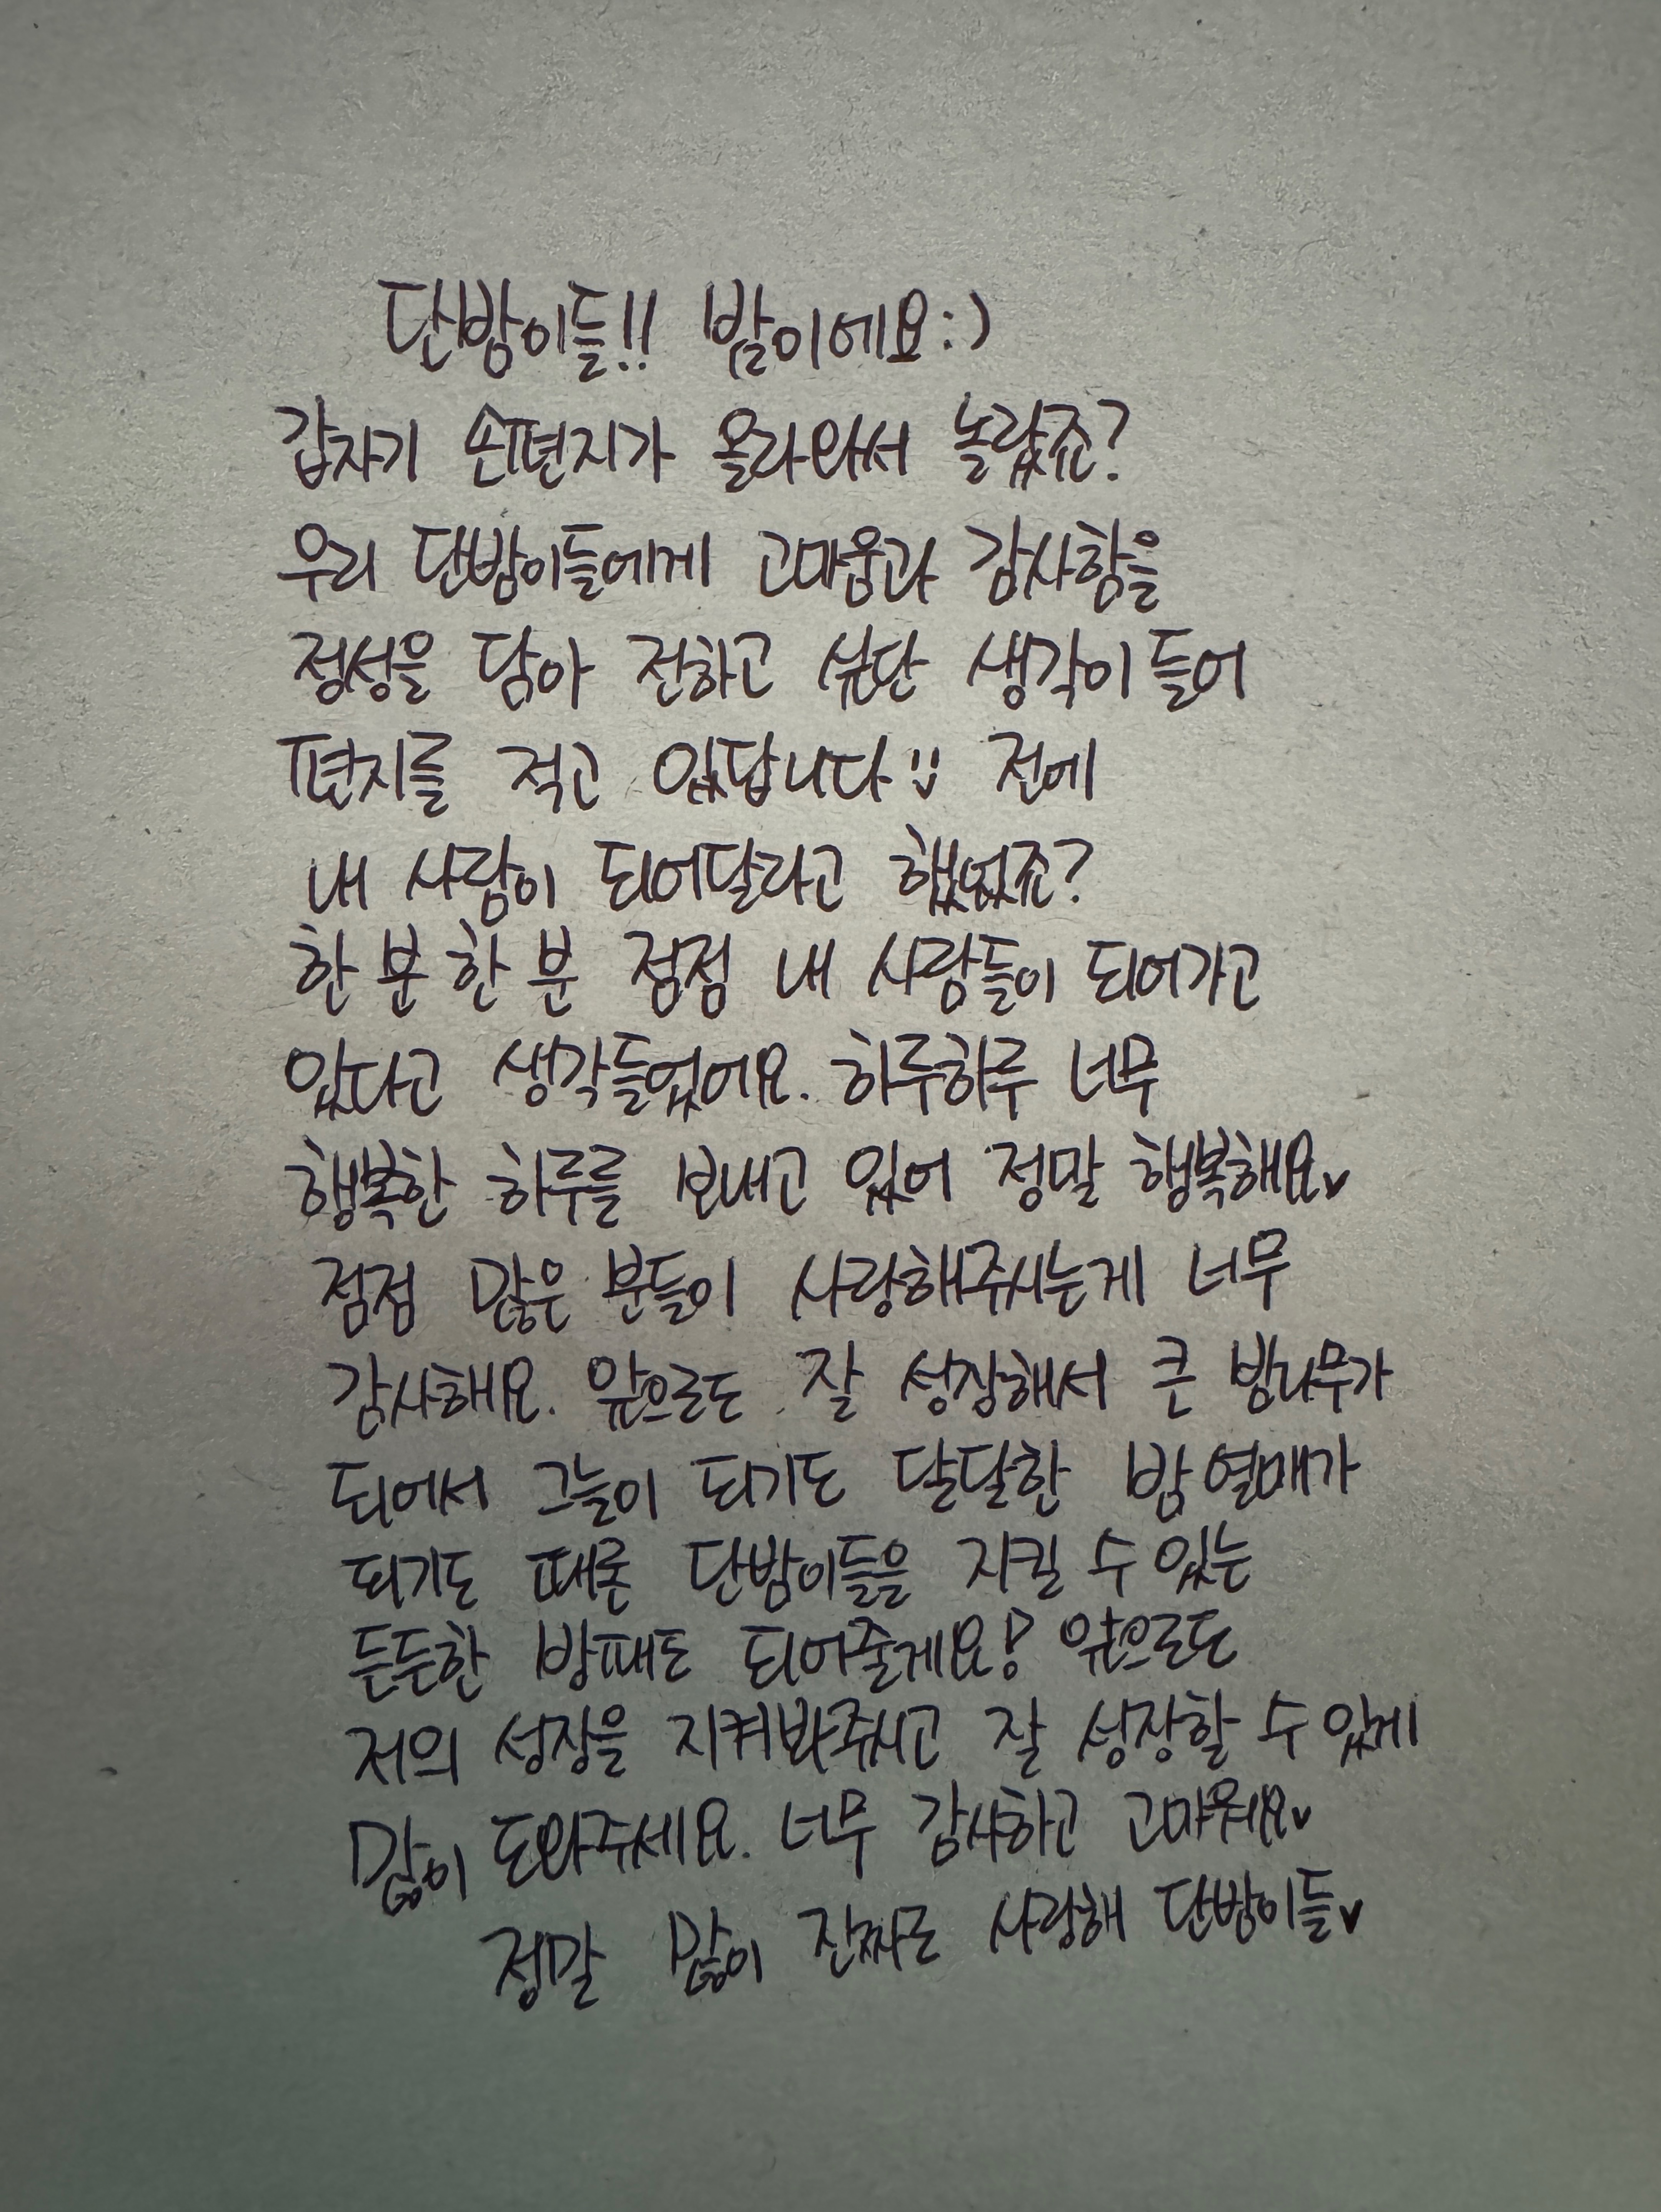 단밤이들!! 밤이에요:)
갑자기 손편지가 올라와서 놀랐죠?
우리 단밤이들에게 고마움과 감사함을
정성을 담아 전하고 싶단 생각이 들어
편지를 적고 있답니다 전에
내 사람이 되어달라고 했었죠?
한 분 한 분 점점 내 사람들이 되어가고
있다고 생각들었어요. 하루하루 너무
행복한 하루를 보내고 있어 정말 행복해요♥
점점 많은 분들이 사랑해주시는게 너무
감사해요. 앞으로도 잘 성장해서 큰 밤나무가
되어서 그늘이 되기도 달달한 밤 열매가
되기도 때론 단밤이들을 지킬 수 있는
든든한 방패도 되어줄게요! 앞으로도
저의 성장을 지켜봐주시고 잘 성장할 수 있게
많이 도와주세요. 너무 감사하고 고마워요♥
정말 많이 진짜로 사랑해 단밤이들♥